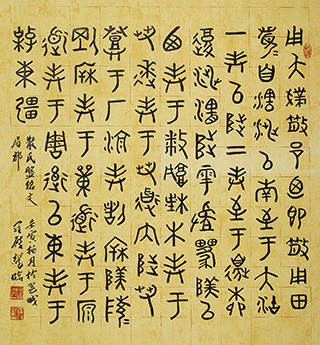 用夨撲散邑乃即散用田
眉自瀗涉以南至于大沽
一封以陟二封至于邊柳
復涉瀗陟雩以
西封于播城楮木封于
芻逨封于芻道内陟
芻登于厂湶封割柝陵
剛柝封于道封于原
道封于周道以東封于
棹東疆
散氏盤銘文
局部
壬寅梅月於邕城
臨